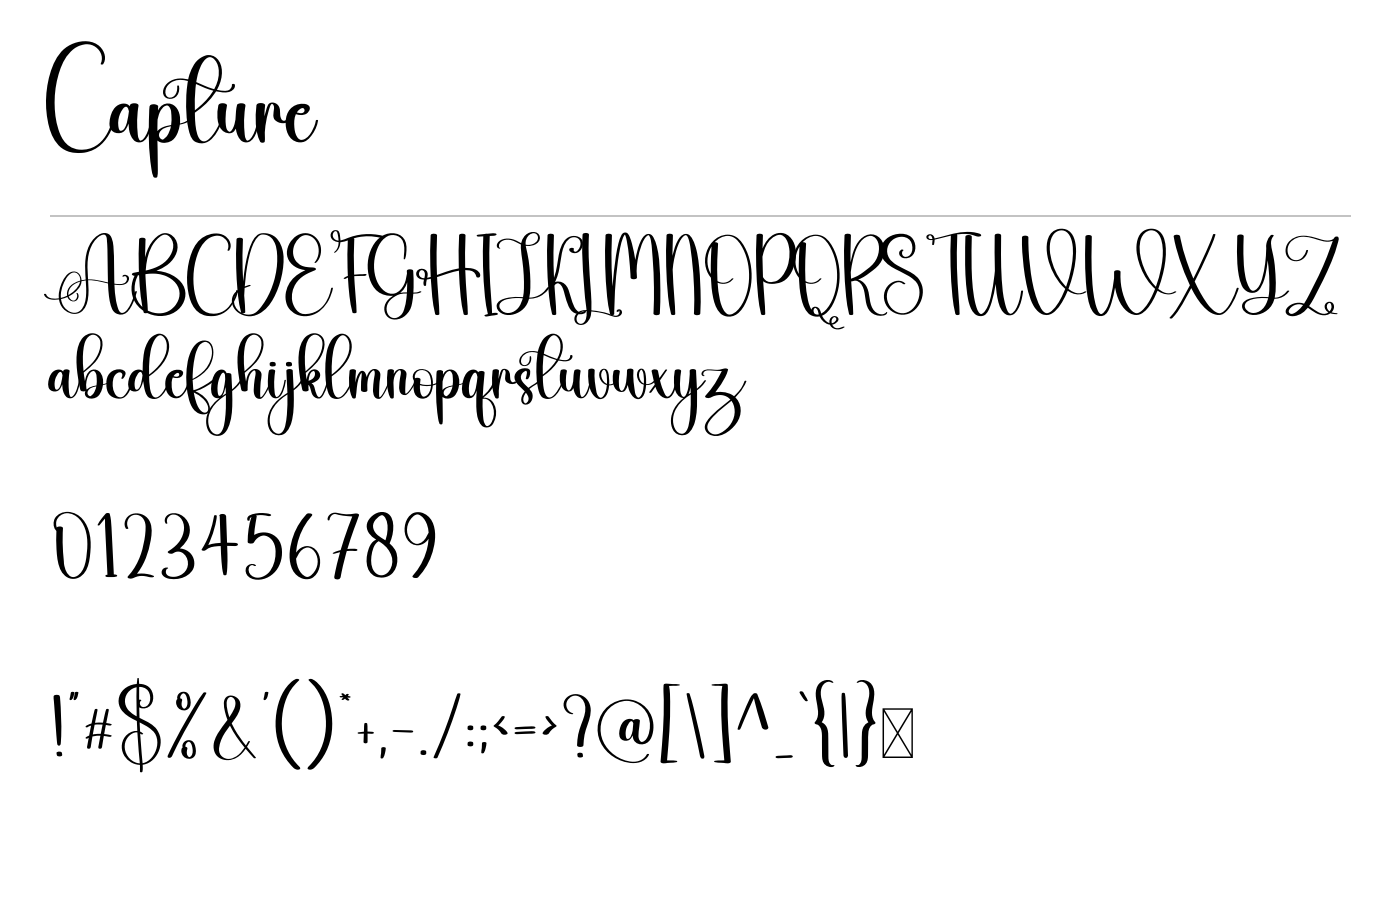 Capture
ABCDEFGHIJKLMNOPQRSTUVWXYZ
abcdefghijklmnopqrstuvwxyz
0123456789
!"#$%&'()*+,-./:;<=>?@[\]^_`{|}